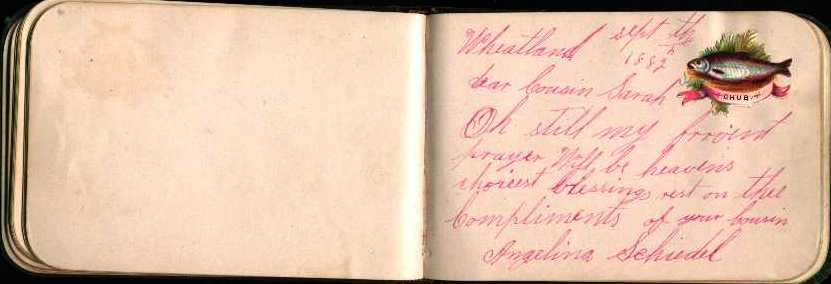 Wheatland sept th
1882
dear Cousin Sarah
CHUB
Oh still my frvient
prayer Will be heavens
choicest blessings rest on thee
Compliments of your Cousin
Angelina Schiedel